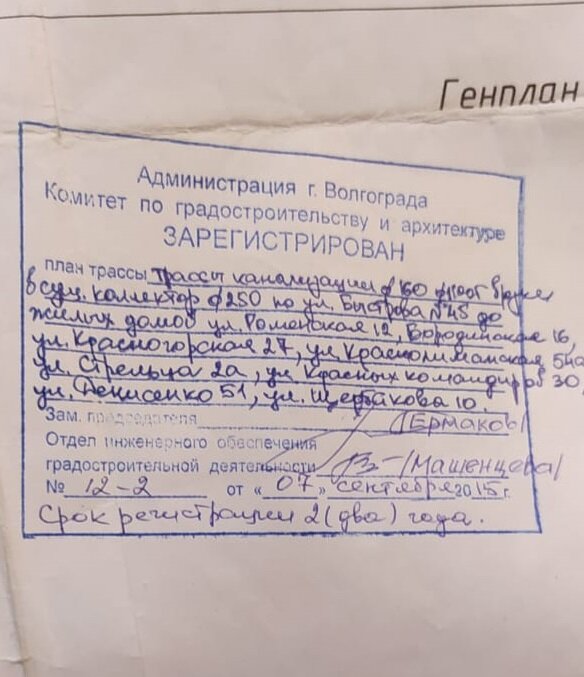 Генплан
Администрация г. Волгограда
Комитет по градостроительству и архитектуре
ЗАРЕГИСТРИРОВАН
план трассы трассы канализации ø 160 от врезки
в сущ. коллектор ø250 по ул. Быстрова №45 до
жилых домов ул. Роменская 12, Бородинская 16,
ул. Красногорская 27, ул. Краснолиманская 54а
ул. Стрельца 2а, ул. Красных командиров 30,
ул. Денисенко 51, ул. Щербакова 10.
Зам. председателя /Ермаков/
Отдел инженерного обеспечения
градостроительной деятельности /Машенцева/
№ 12-2 от «07» сентября 2015 г.
Срок регистрации 2 (два) года.